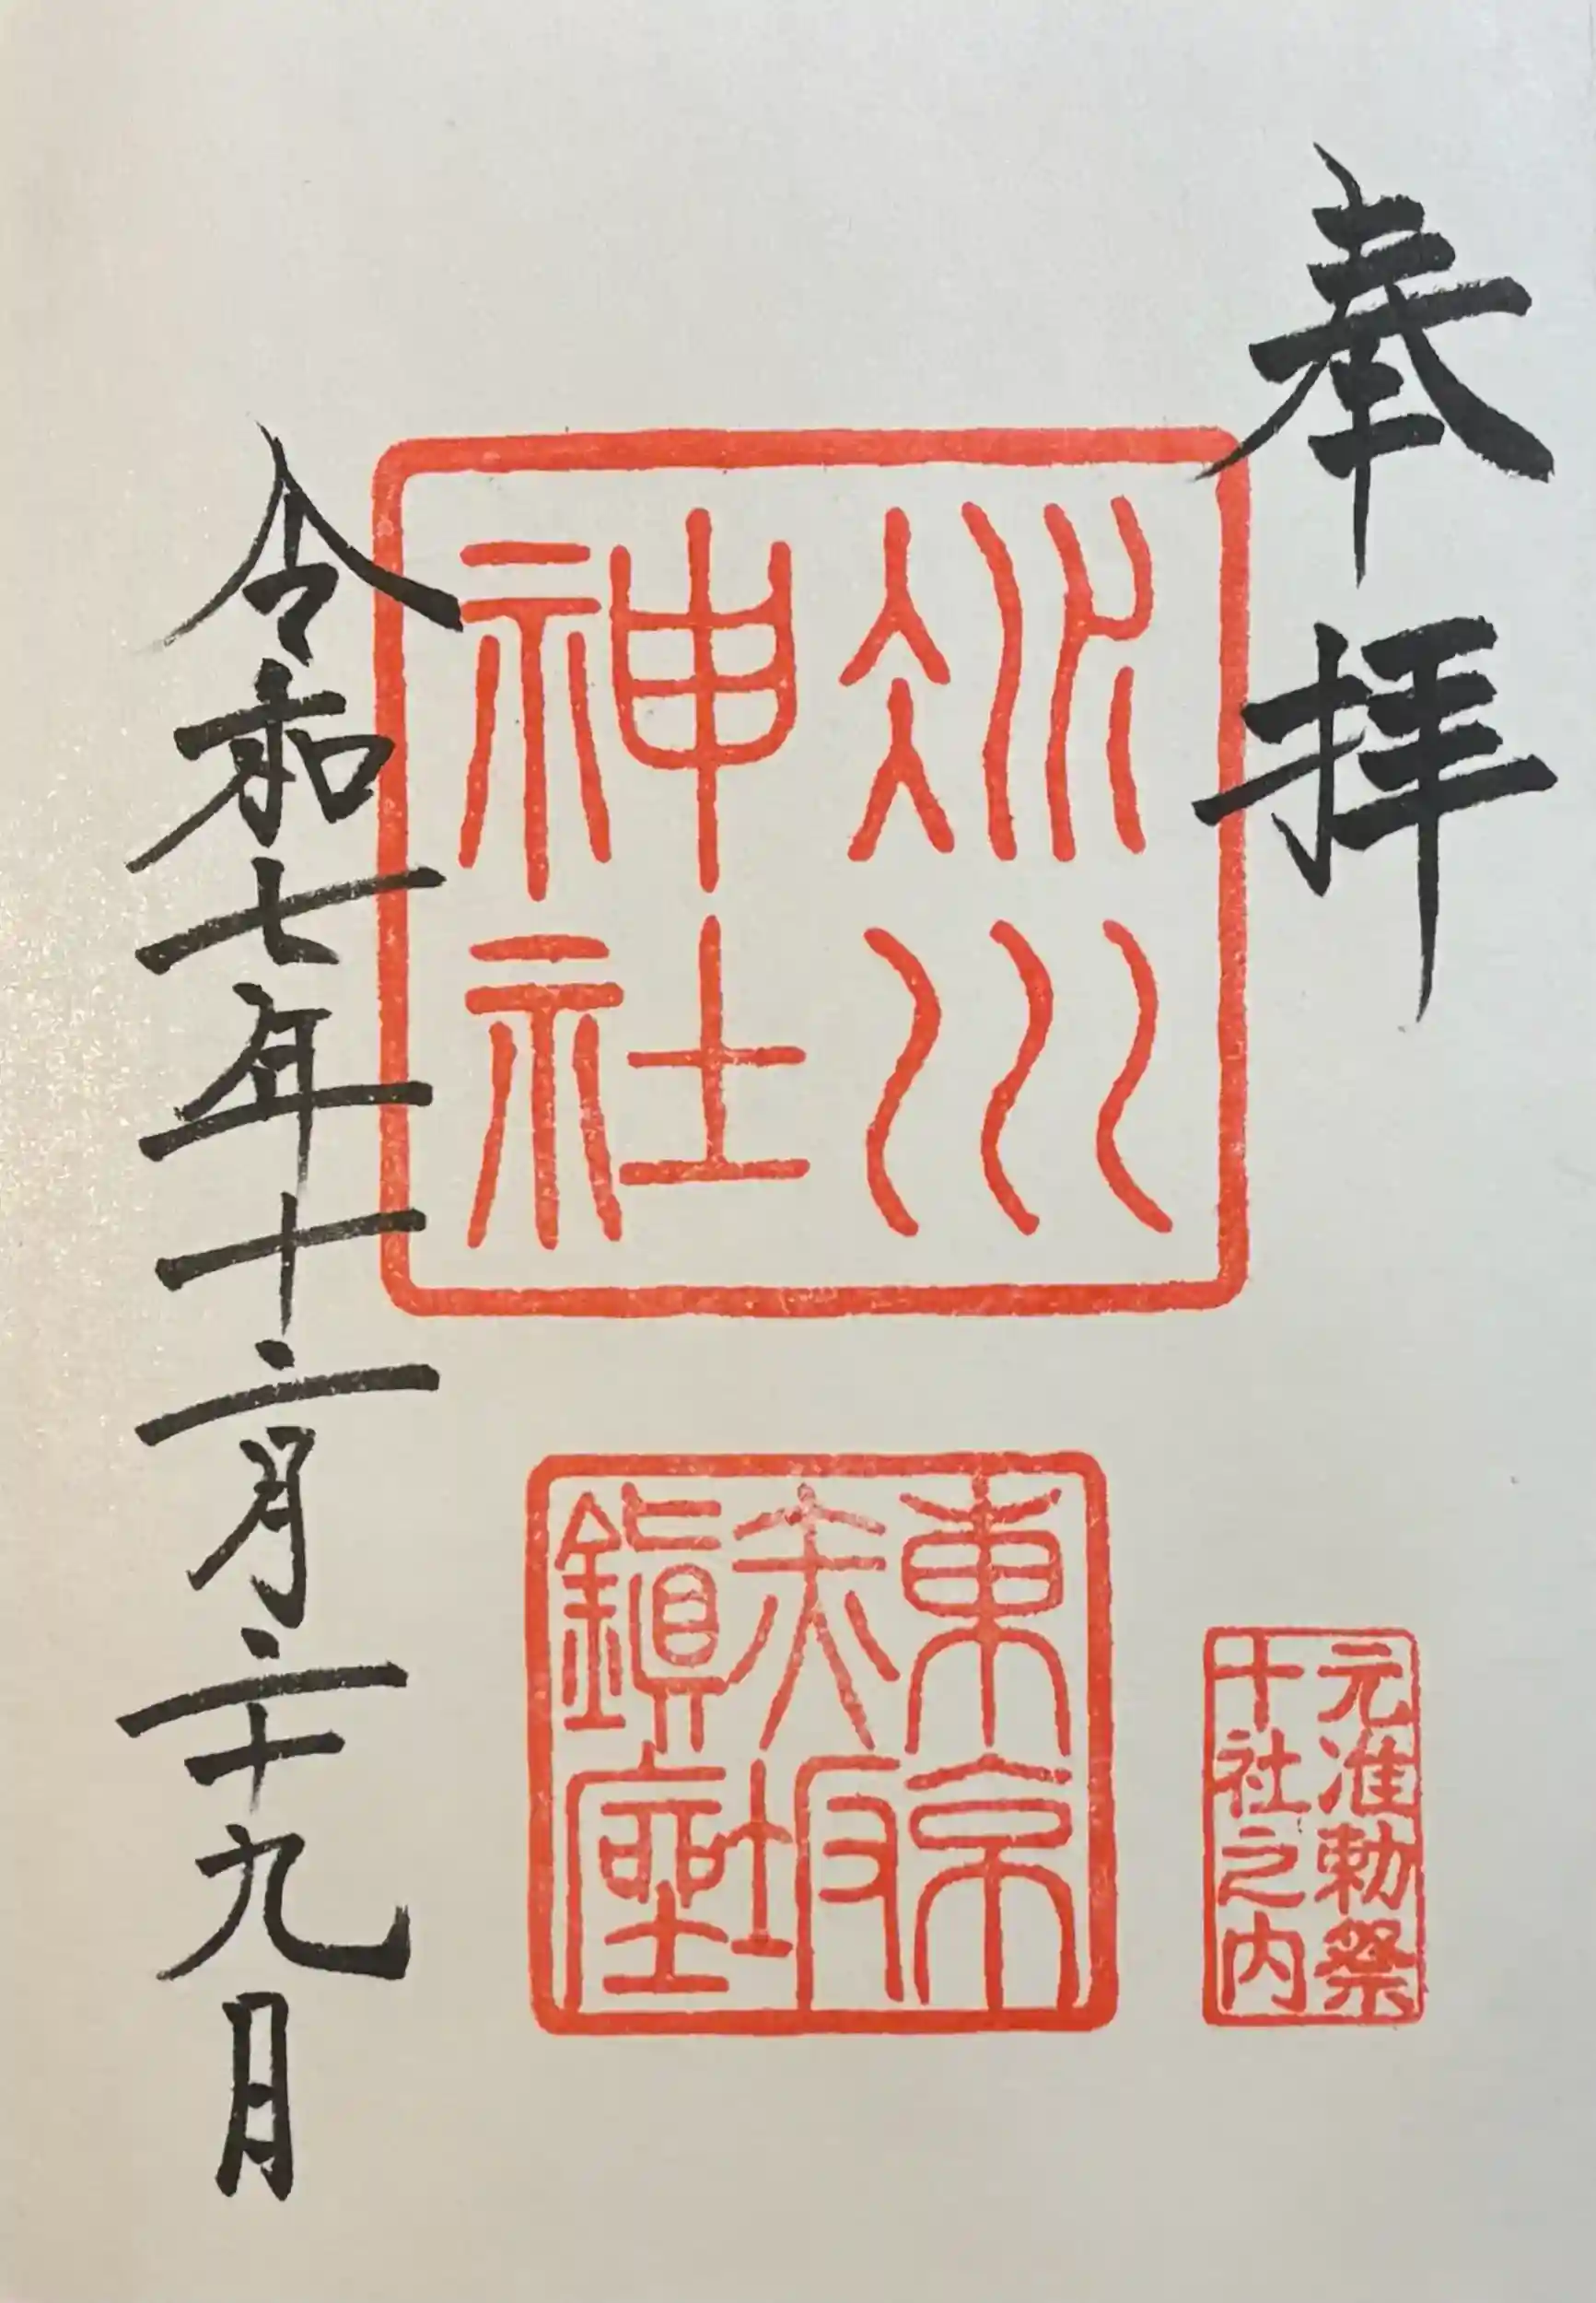 奉拝
冰川
神社
元准勅祭
十社之内
東京
赤坂
鎭座
令和七年十二月二十九日